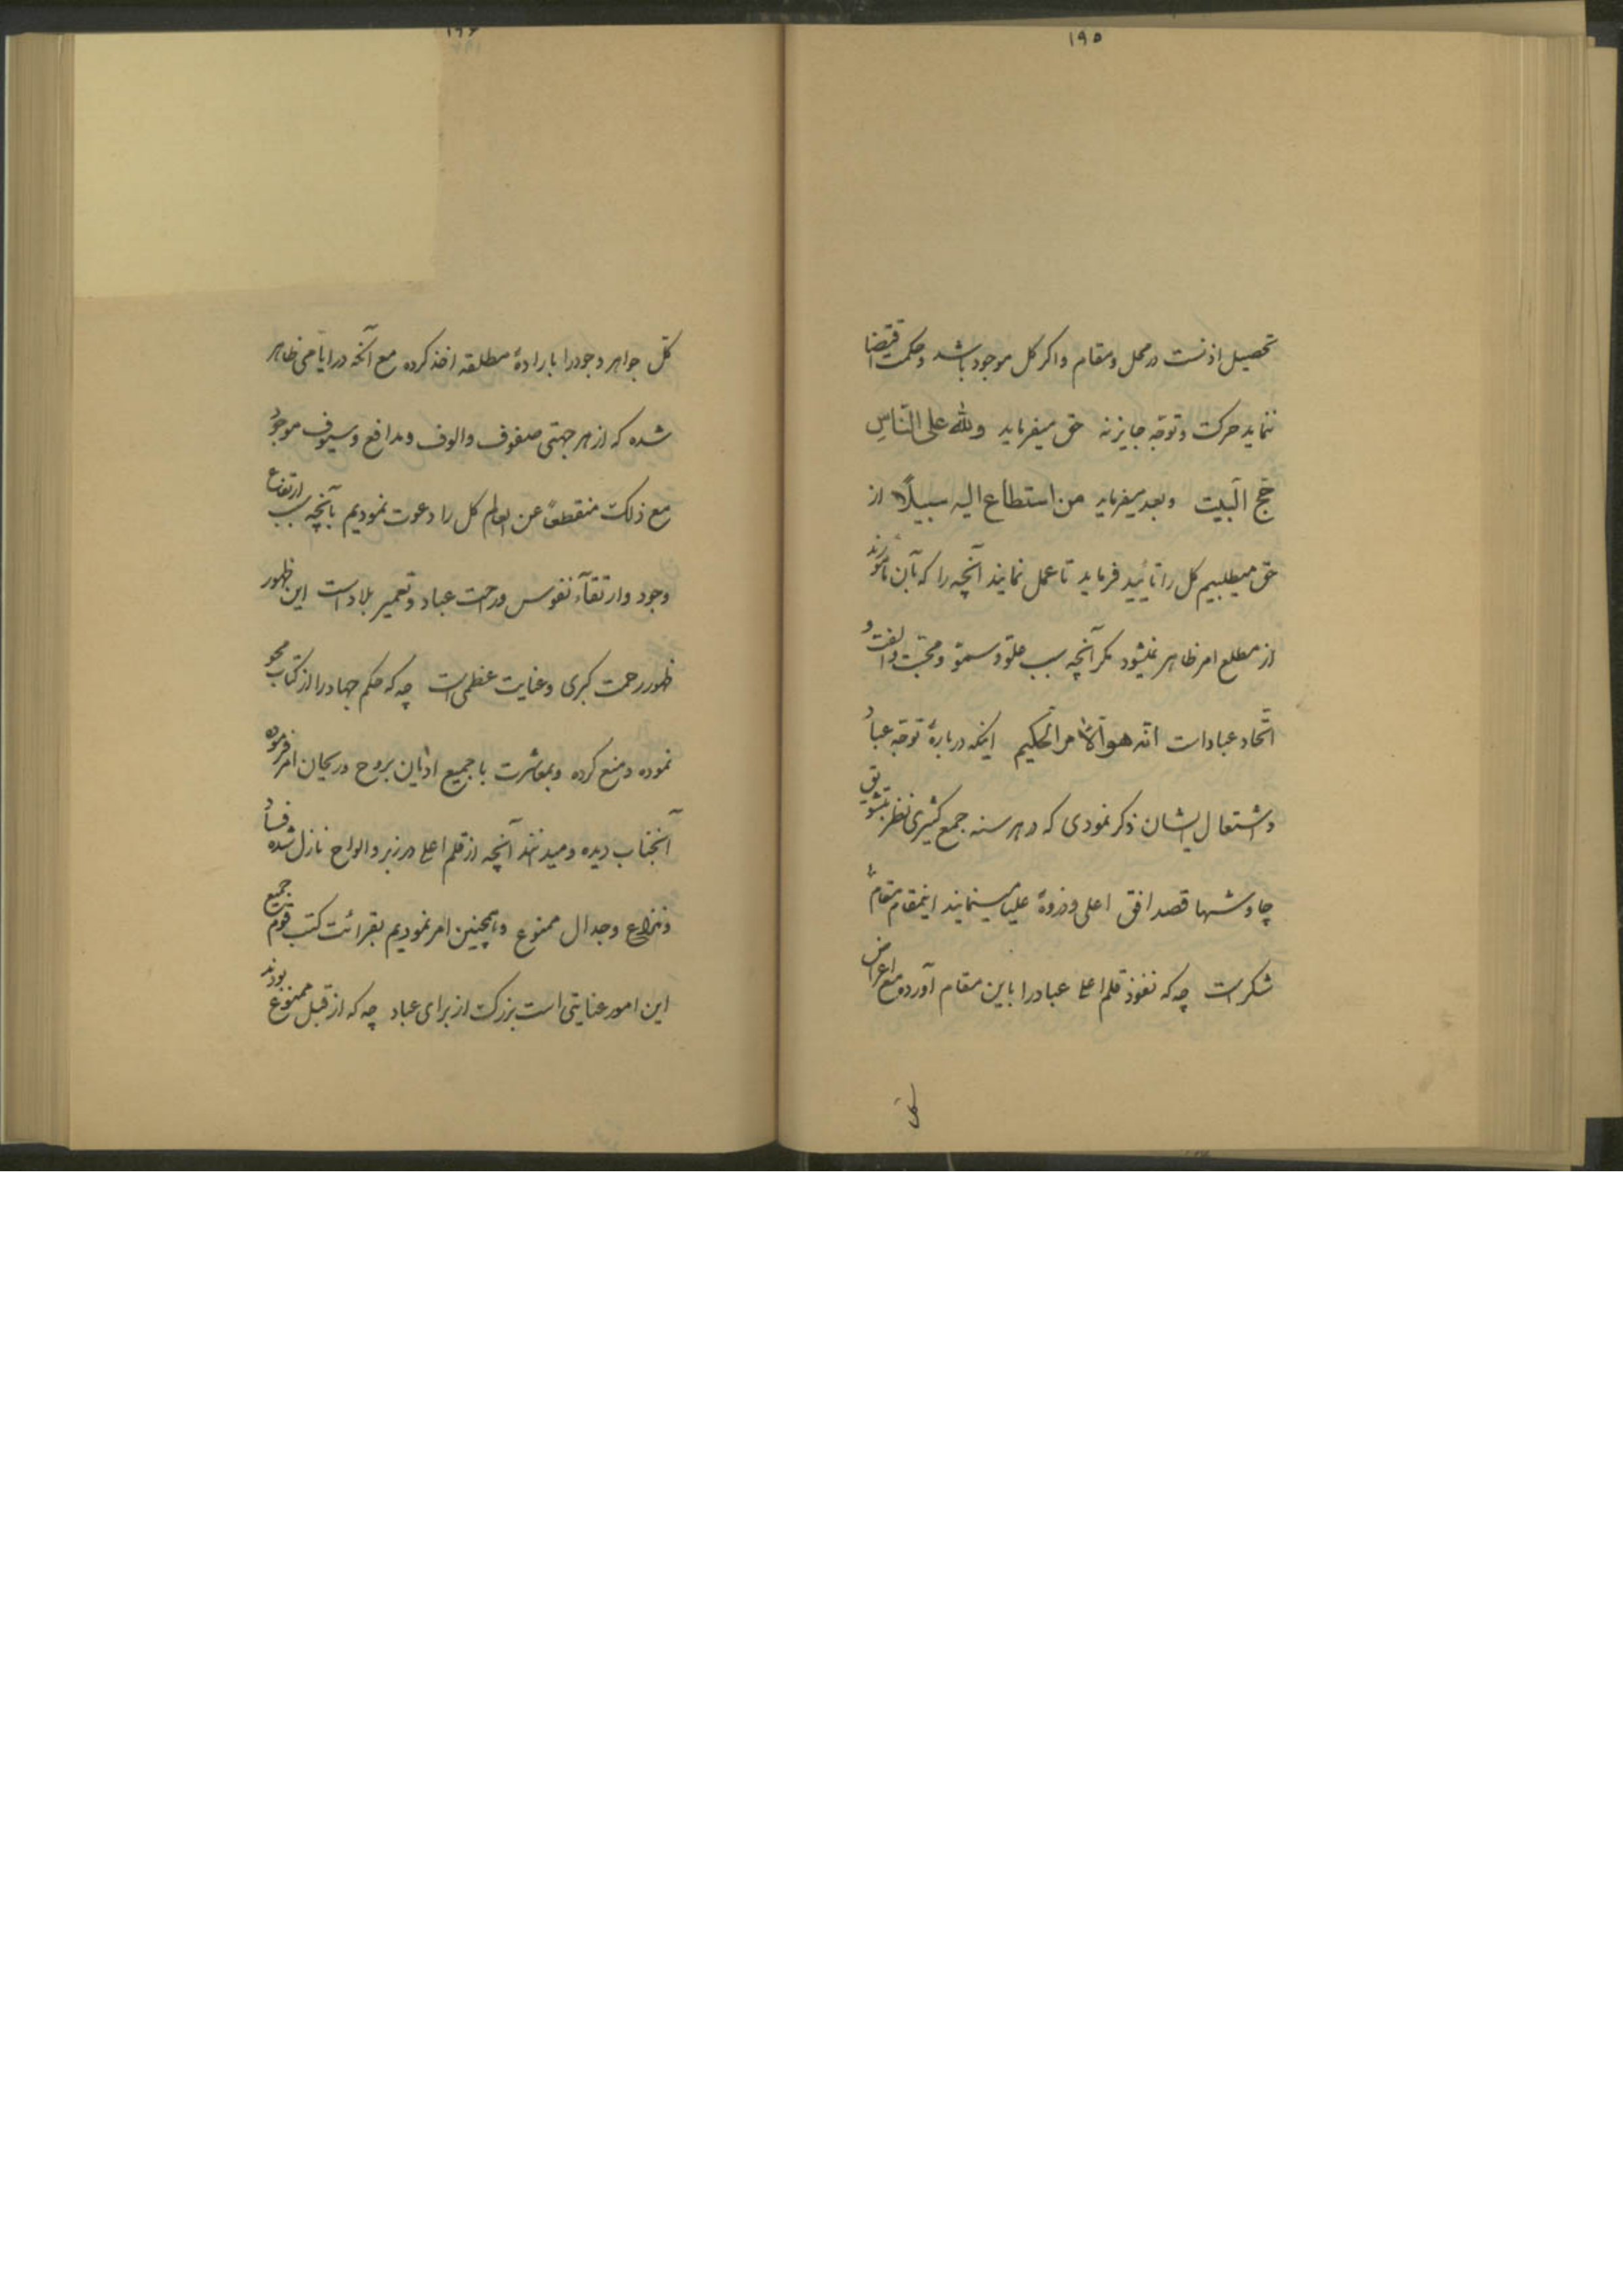 ١٩٥
تحصیل اذنست در محل و مقام و اگر کل موجود باشد و حکمت اقتضا
ننماید حرکت و توجّه جایز نه حق میفرماید ولله علی النّاسِ
حجّ البیت و بعد میفرماید من استطاع الیه سبیلاً از
حق میطلبیم کل را تأیید فرماید تا عمل نمایند آنچه را که بآن مأمورند
از مطلع امر ظاهر نمیشود مگر آنچه سبب علوّ و سموّ و محبّت و الفت و
اتّحاد عباد است انّه هو الآمر الحکیم اینکه دربارهٔ توجّه عباد
و اشتعال ایشان ذکر نمودی که در هر سنه جمع کثیری نظر بتشویق
چاوشها قصد افق اعلی و ذروهٔ علیا مینمایند اینمقام مقام
شکر است چه که نفوذ قلم اعلی عباد را باین مقام آورده مع اعراض
کلّ
١٩٦
کلّ جواهر وجود را بارادهٔ مطلقه اخذ کرده مع آنکه در ایّامی ظاهر
شده که از هر جهتی صفوف و الوف و مدافع و سیوف موجود
مع ذلک منقطعاً عن العالم کل را دعوت نمودیم بآنچه سبب ارتفاع
وجود و ارتقآء نفوس و راحت عباد و تعمیر بلاد است این ظهور
ظهور رحمت کبری و عنایت عظمی است چه که حکم جهاد را از کتاب محو
نموده و منع کرده و بمعاشرت با جمیع ادیان بروح و ریحان امر فرموده
آنجناب دیده و میدانند آنچه از قلم اعلی در زبر و الواح نازل شده فساد
و نزاع و جدال ممنوع و همچنین امر نمودیم بقرائت کتب قوم جمیع
این امور عنایتی است بزرگ از برای عباد چه که از قبل ممنوع بودند